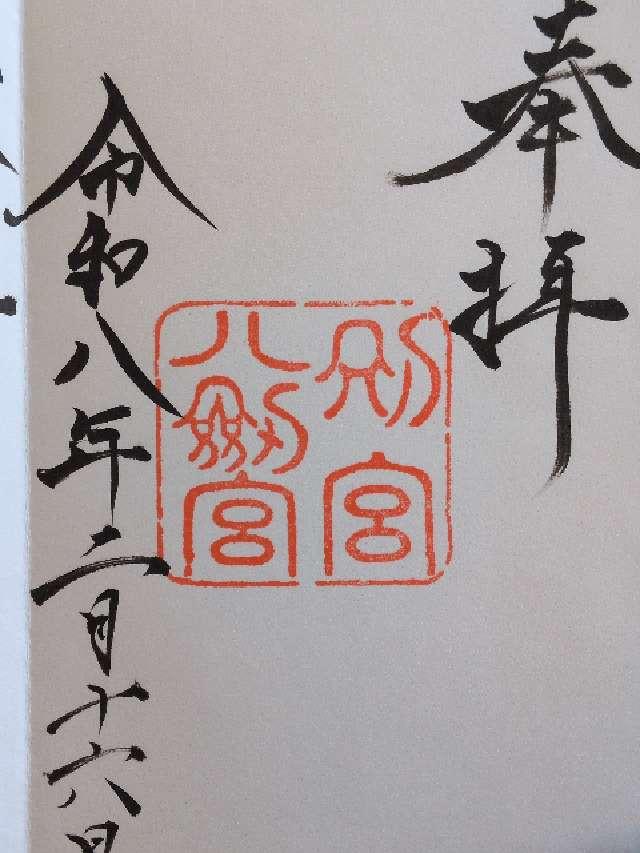 奉拝
別宮
八剣宮
令和八年二月十六日